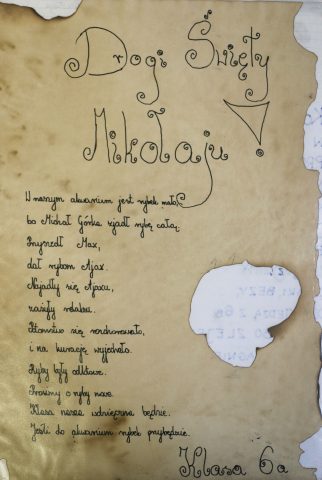 Drogi Święty
Mikołaju!
W naszym akwarium jest rybek mało,
bo Michał Górka zjadł rybę całą.
Przyszedł Max,
dał rybom Ajax.
Najadły się Ajaxu,
zażyły relaksu.
się rozchorowało,
i na kurację wyjechało.
Ryby były
Prosimy o ryby nowe.
Klasa nasza wdzięczna będzie.
Jeśli do akwarium rybek przybędzie.
Klasa 6a